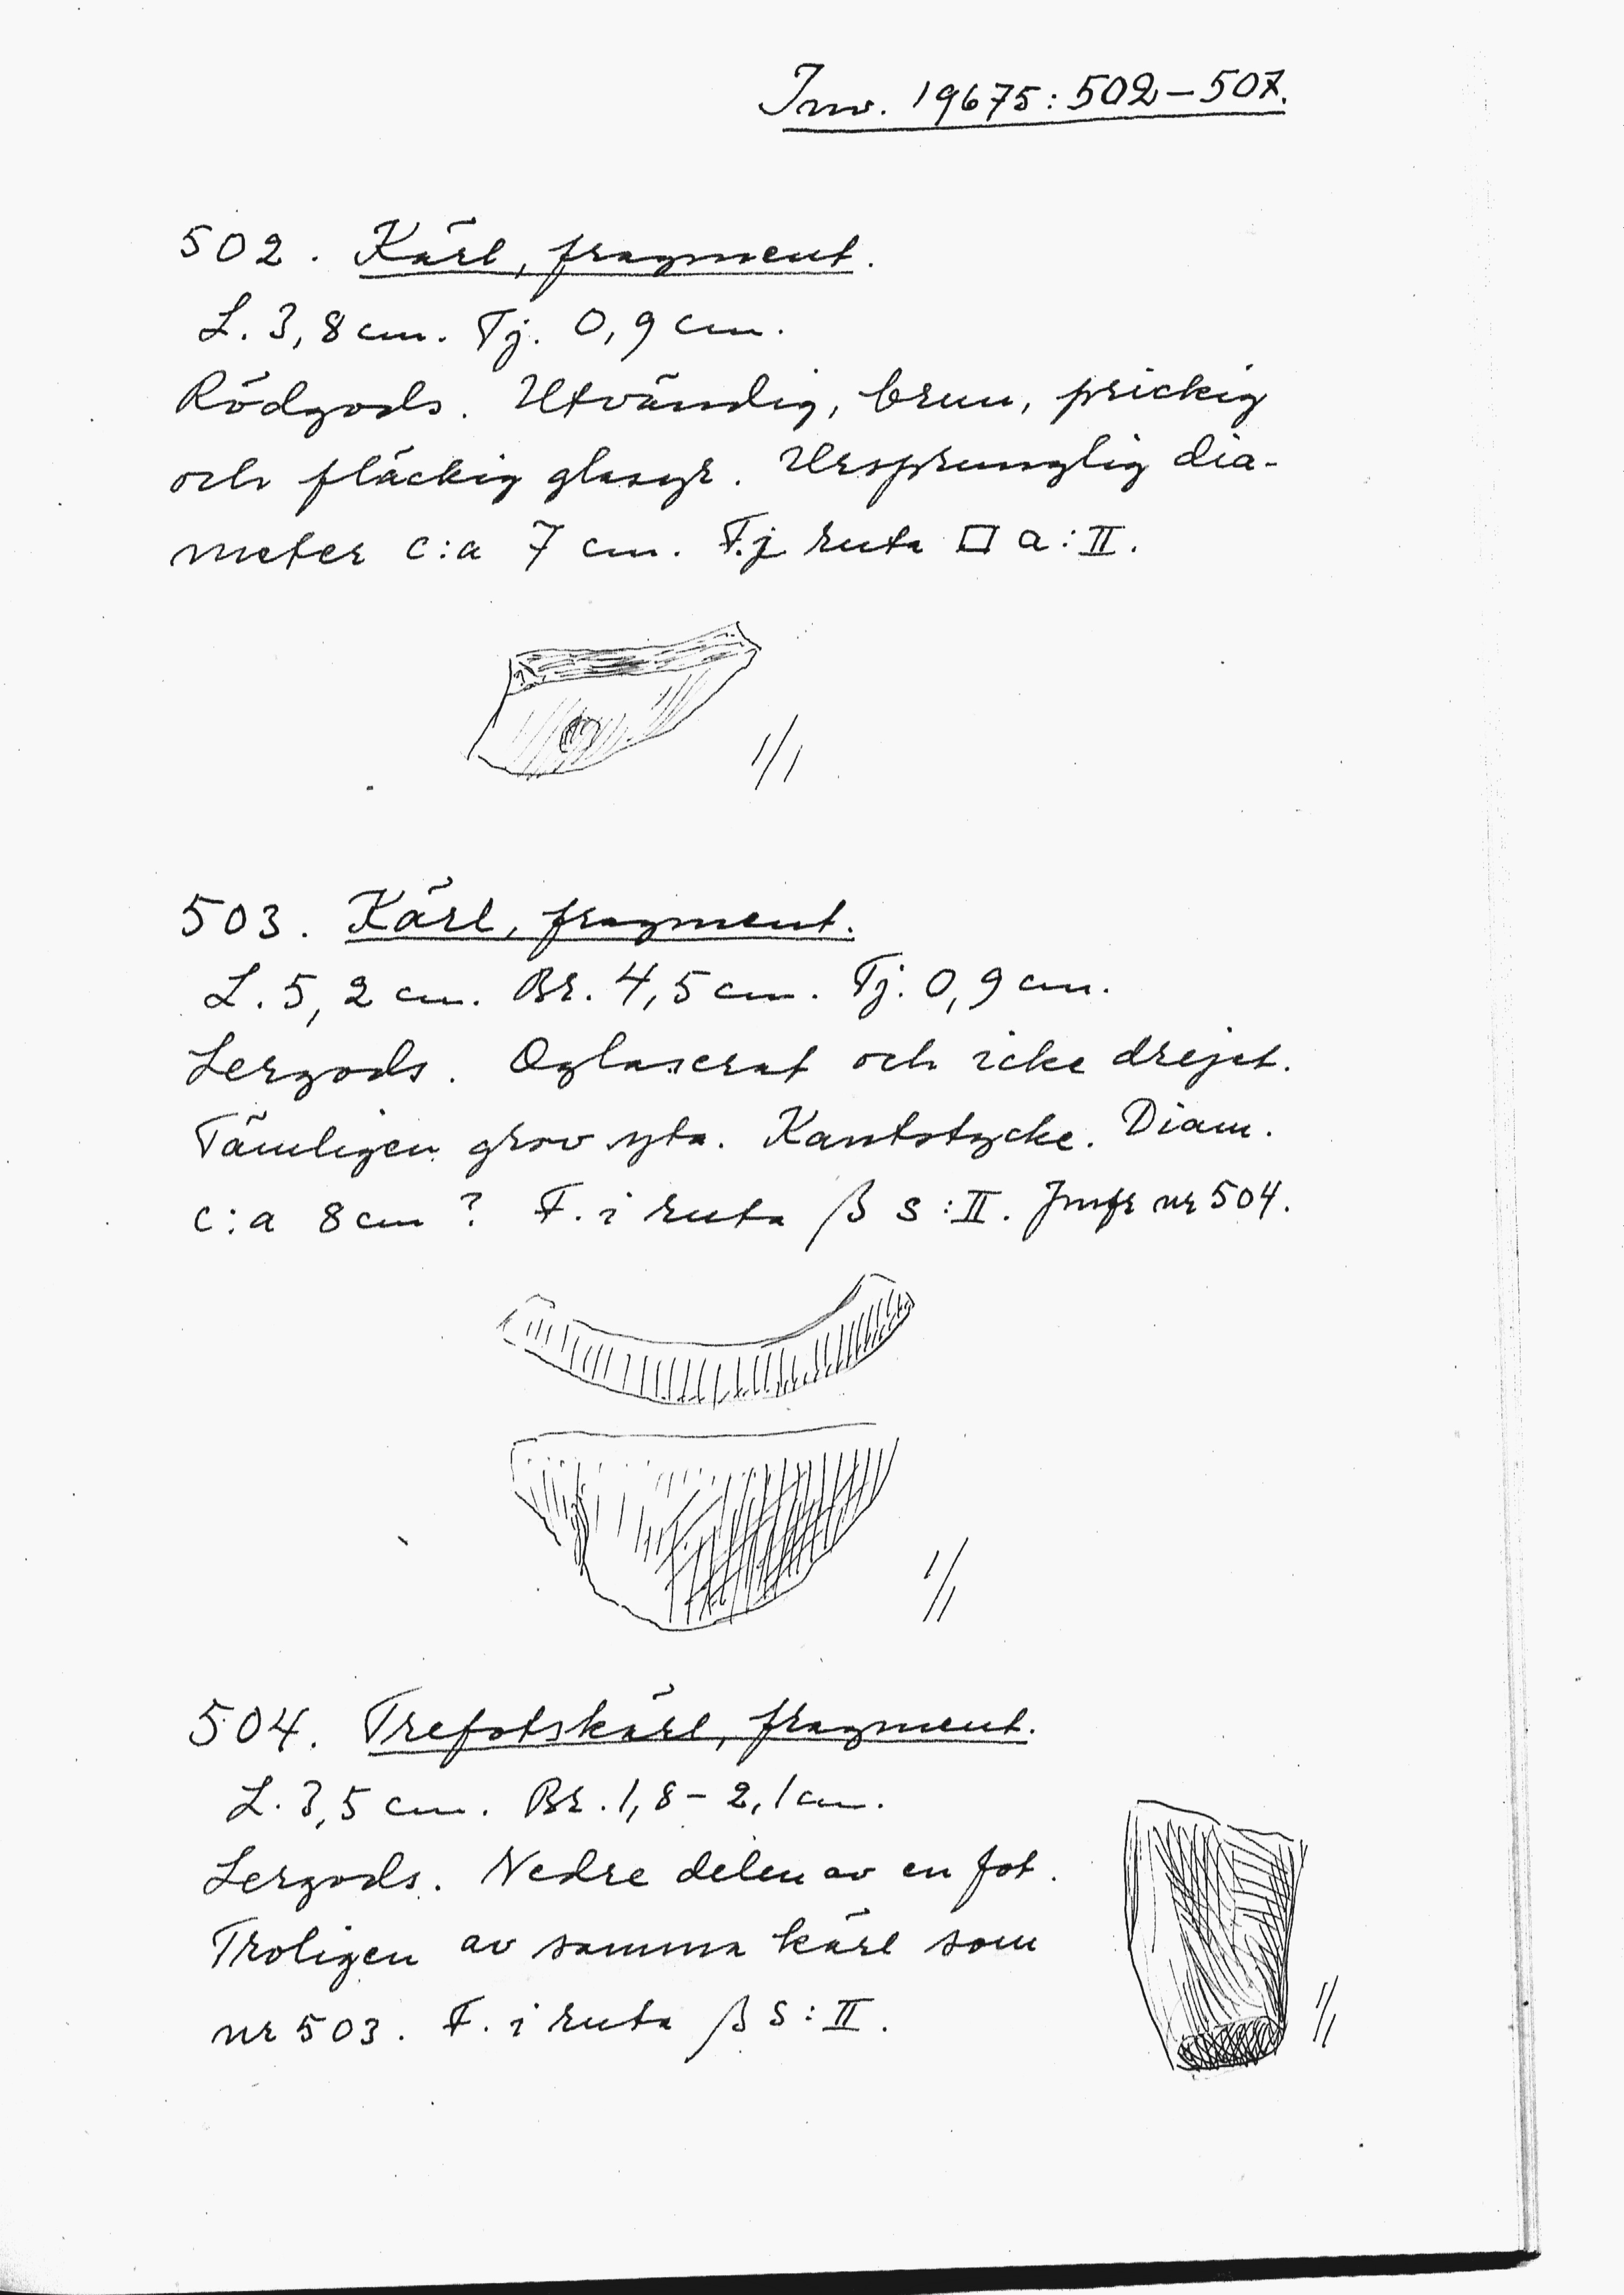 Inv. 19675:502–507.
502. Kärl, fragment.
L. 3,8 cm. Tj. 0,9 cm.
Rödgods. Utvändig, brun, prickig
och fläckig glasyr. Ursprunglig dia-
meter c:a 7 cm. F. i ruta □ a:II.
1/1
503. Kärl, fragment.
L. 5,2 cm. Br. 4,5 cm. Tj. 0,9 cm.
Lergods. Oglaserat och icke drejat.
Tämligen grov yta. Kantstycke. Diam.
c:a 8 cm? F. i ruta β s:II. Jmfr nr 504.
1/1
504. Trefotskärl, fragment.
L. 3,5 cm. Br. 1,8–2,1 cm.
Lergods. Nedre delen av en fot.
Troligen av samma kärl som
nr 503. F. i ruta β s:II.
1/1